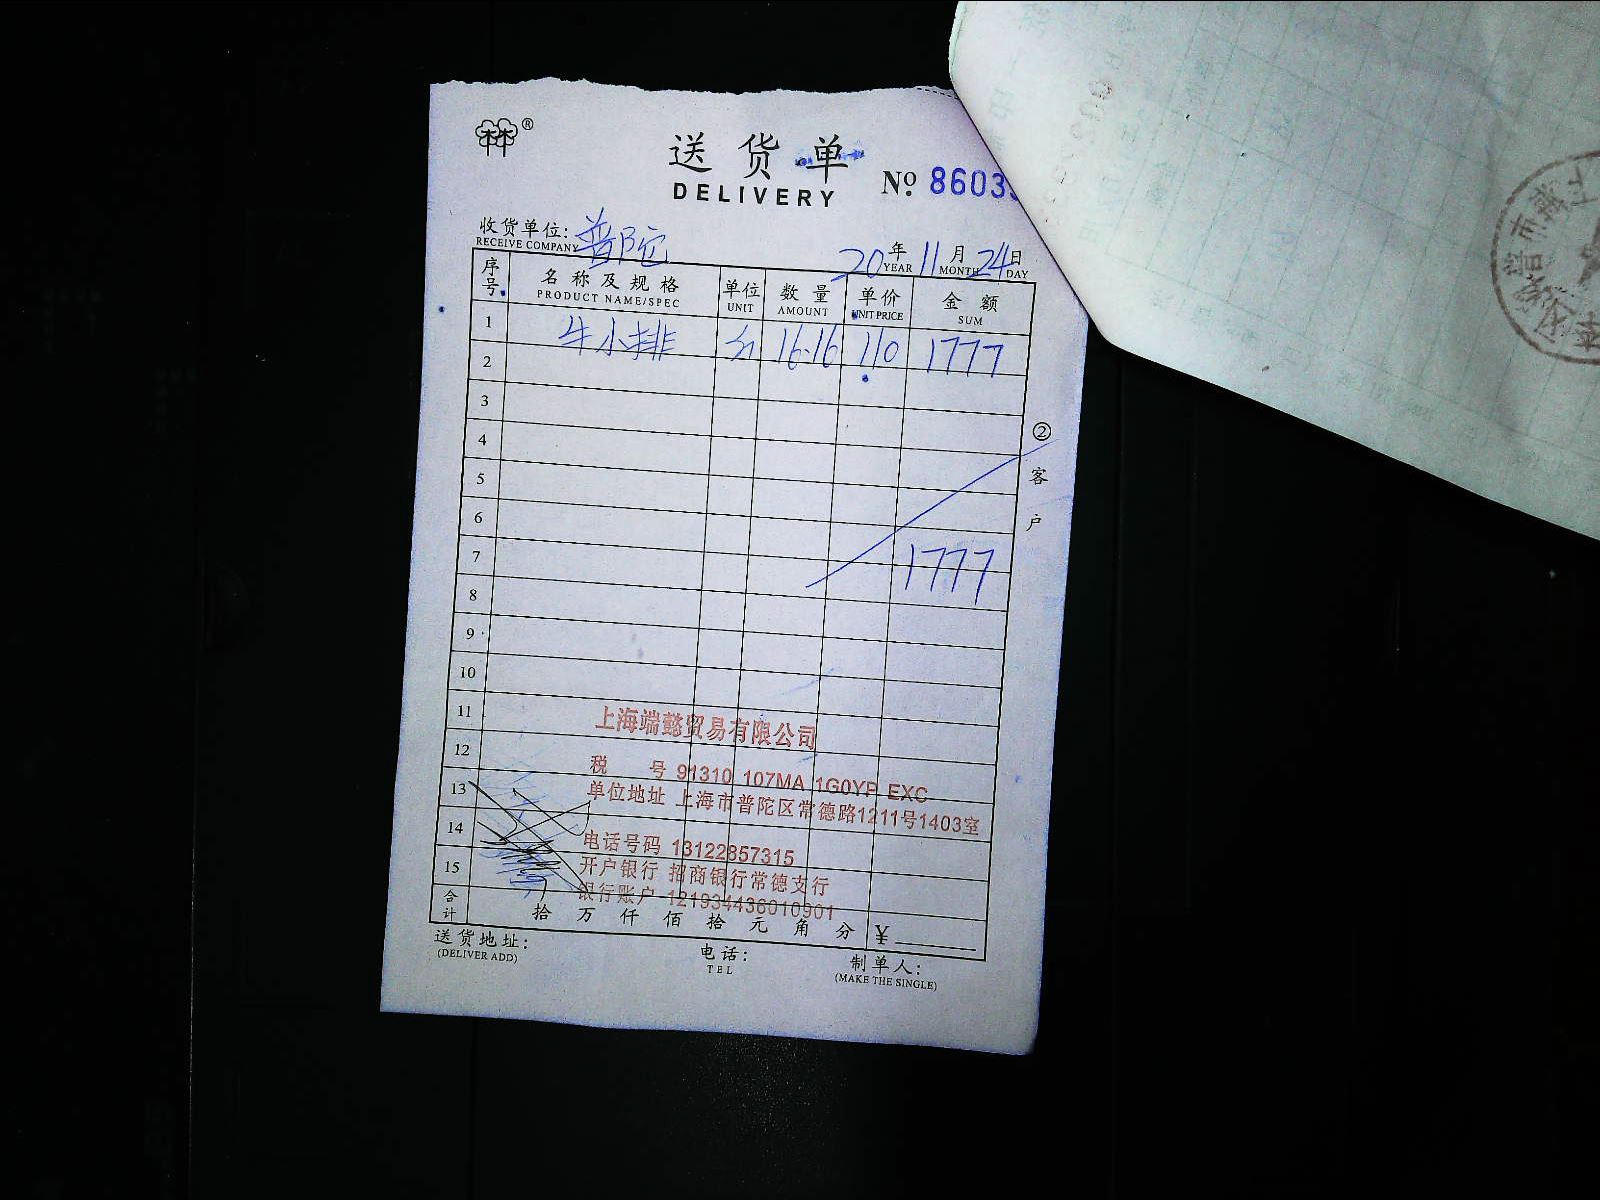 林®
送货单
DELIVERY
№ 8603
收货单位: 普陀
RECEIVE COMPANY
20年 11月 24日
YEAR MONTH DAY
序号 名称及规格 单位 数量 单价 金额
PRODUCT NAME/SPEC UNIT AMOUNT UNIT PRICE SUM
1 牛小排 16.16 110 1777
2
3
4
5
6
7 1777
8
9
10
11
12
13
14
15
②客户
上海端懿贸易有限公司
税 号 91310 107MA 1G0YP EXC
单位地址 上海市普陀区常德路1211号1403室
电话号码 13122857315
开户银行 招商银行常德支行
银行账户 121934436010901
合计 拾 万 仟 佰 拾 元 角 分 ¥
送货地址: 电话: 制单人:
(DELIVER ADD) TEL (MAKE THE SINGLE)